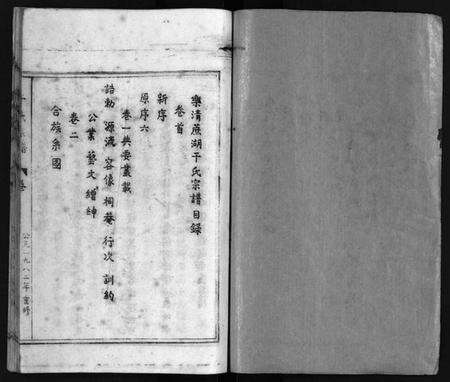 樂清蔗湖干氏宗譜目錄
卷首
新序
原序六
卷一典要叢載
誥勅 源流 容像 祠菴 行次 訓約
公業 藝文 繪紳
卷二
合族系圖
公元一九八二年重修